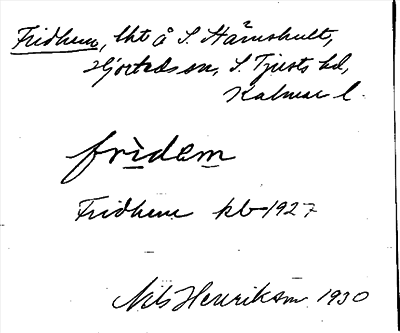 Fridhem, lht å S. Hamshult,
Hjorteds sn, S. Tjusts hd,
Kalmar l.
fridem
Fridhem kb 1927
Nils Henriksson 1930